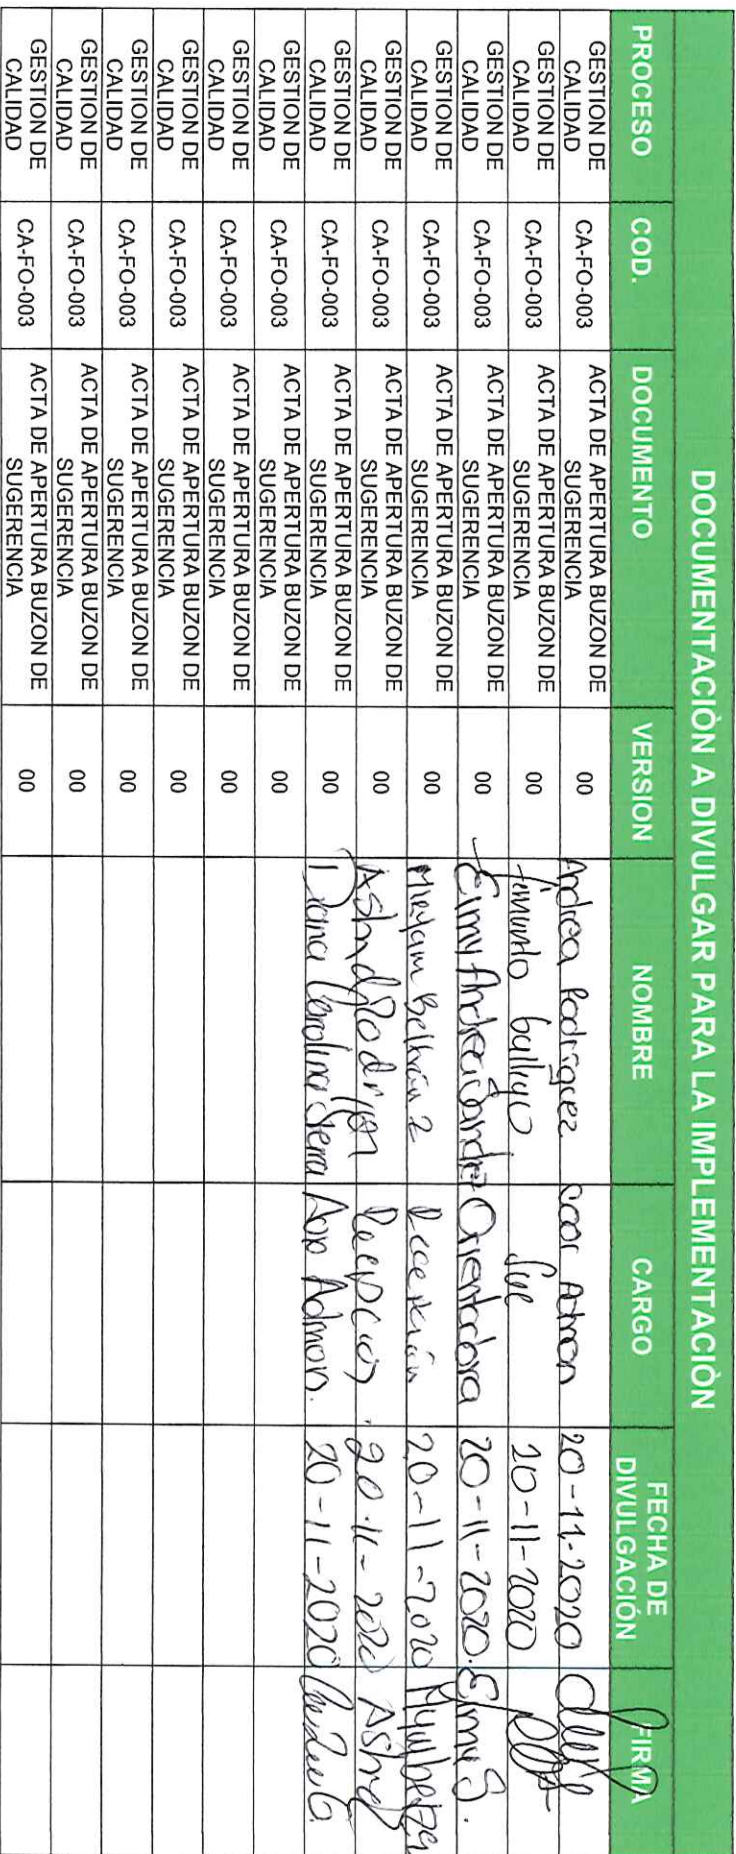 DOCUMENTACIÒN A DIVULGAR PARA LA IMPLEMENTACIÒN
PROCESO COD. DOCUMENTO VERSION NOMBRE CARGO FECHA DE DIVULGACIÓN FIRMA
GESTION DE CALIDAD CA-FO-003 ACTA DE APERTURA BUZON DE SUGERENCIA 00 Andrea Rodriguez Coor Admon 20-11-2020
GESTION DE CALIDAD CA-FO-003 ACTA DE APERTURA BUZON DE SUGERENCIA 00 20-11-2020
GESTION DE CALIDAD CA-FO-003 ACTA DE APERTURA BUZON DE SUGERENCIA 00 Eimy Andrea Sandez Orientadora 20-11-2020. Eimy S.
GESTION DE CALIDAD CA-FO-003 ACTA DE APERTURA BUZON DE SUGERENCIA 00 Miryam Beltrán Z Recepción 20-11-2020
GESTION DE CALIDAD CA-FO-003 ACTA DE APERTURA BUZON DE SUGERENCIA 00 Astrid Rodriguez Recepcion. 20-11-2020 Astrid
GESTION DE CALIDAD CA-FO-003 ACTA DE APERTURA BUZON DE SUGERENCIA 00 Diana Carolina Sierra Aop Admon. 20-11-2020
GESTION DE CALIDAD CA-FO-003 ACTA DE APERTURA BUZON DE SUGERENCIA 00
GESTION DE CALIDAD CA-FO-003 ACTA DE APERTURA BUZON DE SUGERENCIA 00
GESTION DE CALIDAD CA-FO-003 ACTA DE APERTURA BUZON DE SUGERENCIA 00
GESTION DE CALIDAD CA-FO-003 ACTA DE APERTURA BUZON DE SUGERENCIA 00
GESTION DE CALIDAD CA-FO-003 ACTA DE APERTURA BUZON DE SUGERENCIA 00
GESTION DE CALIDAD CA-FO-003 ACTA DE APERTURA BUZON DE SUGERENCIA 00